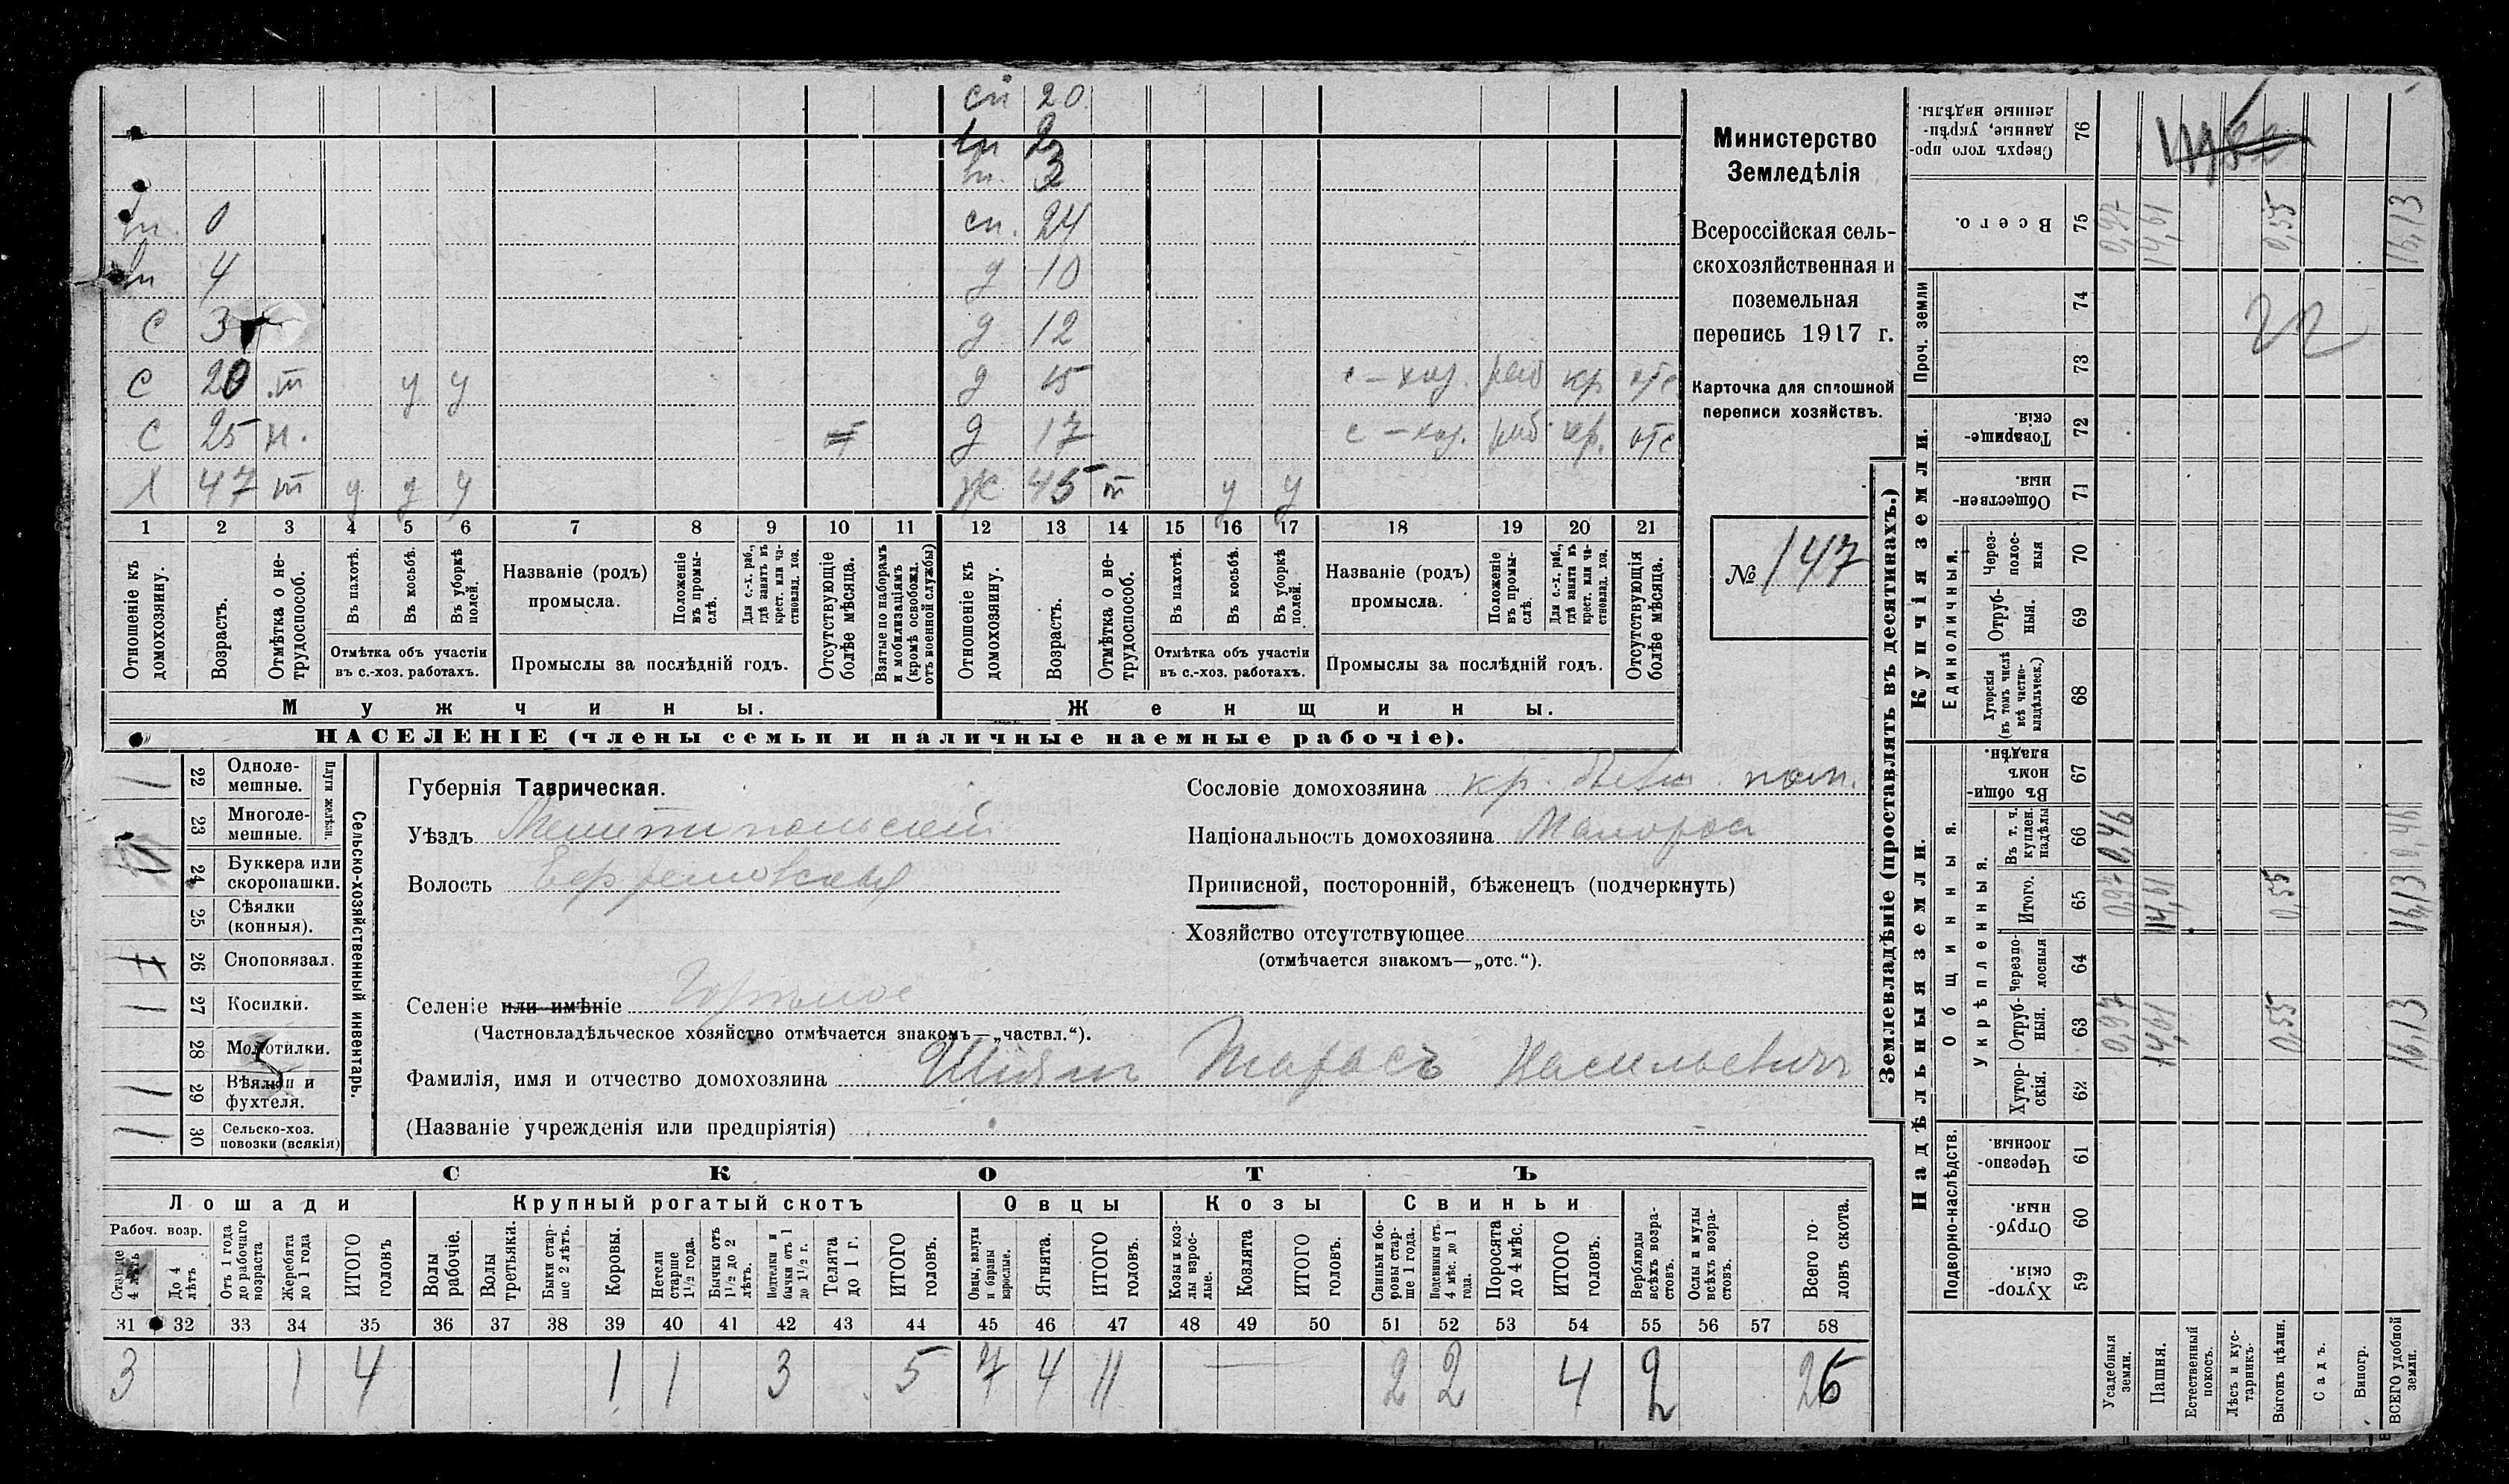 сп 20
вн 2
вн. 3
вн. 0 сп. 24
вн 4 д 10
с 3 д 12
с 20 т у у д 15 с-хоз. раб кр отс
с 25 н. от д 17 с-хоз. раб кр. отс
х 47 т у у у ж 45 т у у
1 2 3 4 5 6 7 8 9 10 11 12 13 14 15 16 17 18 19 20 21
Отношеніе къ домохозяину.
Возрастъ.
Отмѣтка о не-трудоспособ.
Въ пахотѣ.
Въ косьбѣ.
Въ уборкѣ полей.
Отмѣтка объ участіи
въ с.-хоз. работахъ.
Названіе (родъ)
промысла.
Положеніе въ промы-слѣ.
Для с.-х. раб., гдѣ занятъ въ крест. или ча-стновлад. хоз.
Промыслы за послѣдній годъ.
Отсутствующіе болѣе мѣсяца.
Взятые по наборамъ и мобилизаціямъ (кромѣ освобожд. отъ военной службы)
Отношеніе къ домохозяину.
Возрастъ.
Отмѣтка о не-трудоспособ.
Въ пахотѣ.
Въ косьбѣ.
Въ уборкѣ полей.
Отмѣтка объ участіи
въ с.-хоз. работахъ.
Названіе (родъ)
промысла.
Положеніе въ промы-слѣ.
Для с.-х. раб., гдѣ занята въ крест. или ча-стновлад. хоз.
Промыслы за послѣдній годъ.
Отсутствующія болѣе мѣсяца.
Мужчины. Женщины.
НАСЕЛЕНІЕ (члены семьи и наличные наемные рабочіе).
Министерство
Земледѣлія
Всероссійская сель-
скохозяйственная и
поземельная
перепись 1917 г.
Карточка для сплошной
переписи хозяйствъ.
№ 147
Сельско-хозяйственный инвентарь.
Плуги желѣзн.
1 22 Одноле-мешные.
23 Многоле-мешные.
24 Буккера или скоропашки.
25 Сѣялки (конныя).
26 Сноповязал.
1 27 Косилки.
28 Молотилки.
1 29 Вѣялки и фухтеля.
1 30 Сельско-хоз. повозки (всякія)
Губернія Таврическая.
Уѣздъ Мелитопольскій
Волость Ефремовская
Селеніе или имѣніе Горѣлое
(Частновладѣльческое хозяйство отмѣчается знакомъ—„частвл.“).
Фамилія, имя и отчество домохозяина Шіян Тарасъ Васильевичъ
(Названіе учрежденія или предпріятія)
Сословіе домохозяина кр. бывш. пом.
Національность домохозяина Малоросъ
Приписной, посторонній, бѣженецъ (подчеркнуть)
Хозяйство отсутствующее
(отмѣчается знакомъ—„отс.“).
СКОТЪ
Лошади Крупный рогатый скотъ Овцы Козы Свиньи
Рабоч. возр.
Старше 4 лѣтъ
До 4 лѣтъ
Отъ 1 года до рабочаго возраста
Жеребята до 1 года
ИТОГО головъ
Волы рабочіе.
Волы третьяки.
Быки стар-ше 2 лѣтъ.
Коровы.
Нетели старше 1½ года.
Бычки отъ 1½ до 2 лѣтъ.
Подтелки и бычки отъ 1 до 1½ г.
Телята до 1 г.
ИТОГО головъ.
Овцы, валухи и бараны взрослые.
Ягнята.
ИТОГО головъ.
Козы и коз-лы взрос-лые.
Козлята
ИТОГО головъ.
Свиньи и бо-ровы стар-ше 1 года.
Подсвинки отъ 4 мѣс. до 1 года.
Поросята до 4 мѣс.
ИТОГО головъ.
Верблюды всѣхъ возра-стовъ.
Ослы и мулы всѣхъ возра-стовъ.
Всего го-ловъ скота.
31 32 33 34 35 36 37 38 39 40 41 42 43 44 45 46 47 48 49 50 51 52 53 54 55 56 57 58
3 1 4 1 1 3 5 7 4 11 — 2 2 4 2 26
Землевладѣніе (проставлять въ десятинахъ.)
Купчія земли.
Надѣльныя земли.
Сверхъ того про-данные, укрѣп-ленные надѣлы. 76
Всего. 75 0,97 14,61 0,55 16,13
Проч. земли
74 22
73
Товарище-скія. 72
Обществен-ныя. 71
Единоличныя.
Через-полос-ныя 70
Отруб-ныя. 69
Хуторскія (въ томъ числѣ всѣ частно-владѣльческ.) 68
Въ общи-номъ владѣн. 67
Общинныя.
Укрѣпленныя.
Въ т. ч. куплен. надѣлы 66 0,46 0,46
Итого. 65 0,97 14,61 0,55 16,13
Черезпо-лосныя 64
Отруб-ныя. 63 0,97 14,61 0,55 16,13
Хутор-скія. 62
Подворно-наслѣдств.
Черезпо-лосныя 61
Отруб-ныя. 60
Хутор-скія. 59
Усадебныя земли.
Пашня.
Естественный покосъ.
Лѣсъ и кус-тарникъ.
Выгонъ цѣлин.
Садъ.
Виногр.
ВСЕГО удобной земли.